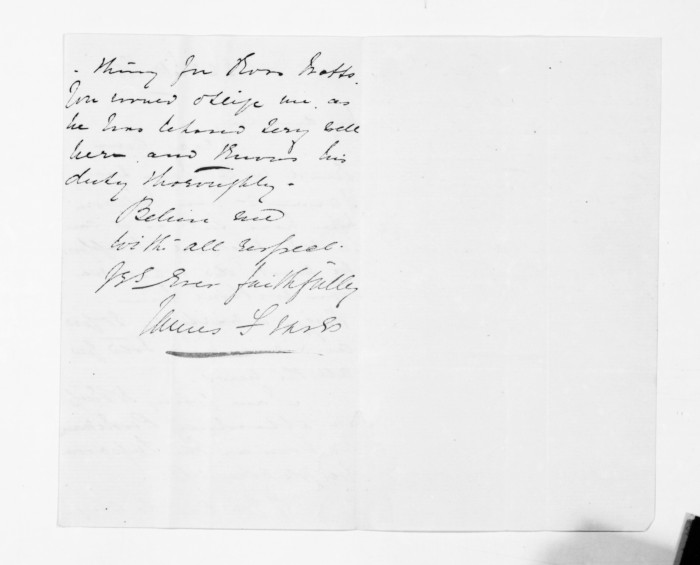 - thing for Poor Watts.
You would oblige me, as
he has behaved very well
here, and knows his
duty thoroughly.
Believe me
with all respect.
Yrs Ever faithfully
James